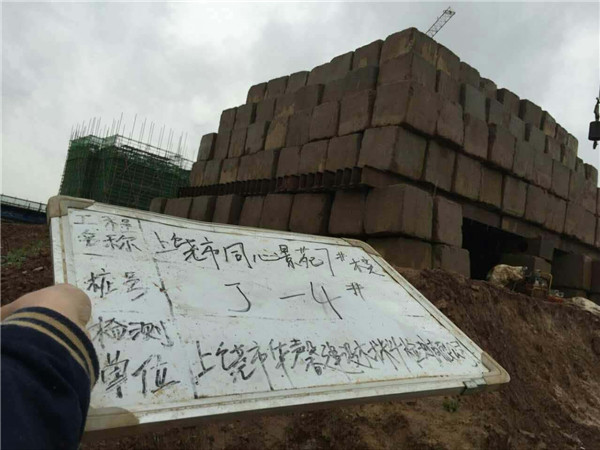 工程名称 上饶市同心景苑7#楼
桩号 J-4#
检测单位 上饶市华声建设工程检测有限公司